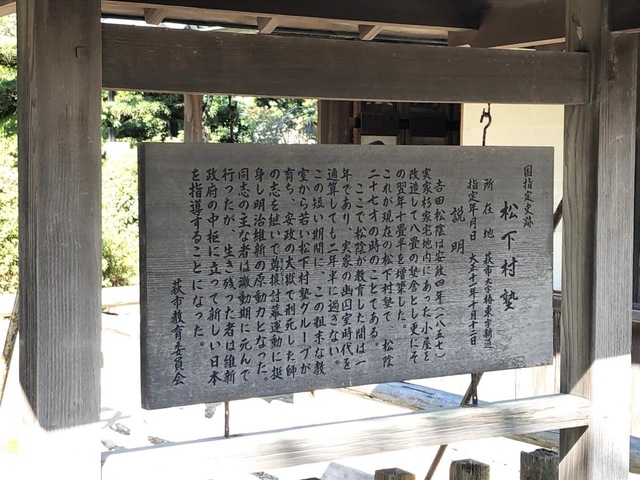 国指定史跡
松下村塾
所在地 萩市大字椿東字新道
指定年月日 大正十一年十月十二日
説明
吉田松陰は安政四年（一八五七）
実家杉家宅地内にあった小屋を
改造して八畳の塾舎とし更にそ
の翌年十畳半を増築した。
これが現在の松下村塾で 松陰
二十七才の時のことである。
ここで松陰が教育した間は一
年であり、実家の幽囚室時代を
通算しても二年半に過ぎない。
この短い期間に、この粗末な教
室から若い松下村塾グループが
育ち、安政の大獄で刑死した師
の志を継いで尊攘討幕運動に挺
身し明治維新の原動力となった。
同志の主な者は激動期に死んで
行ったが、生き残った者は維新
政府の中枢に立って新しい日本
を指導することになった。
萩市教育委員会